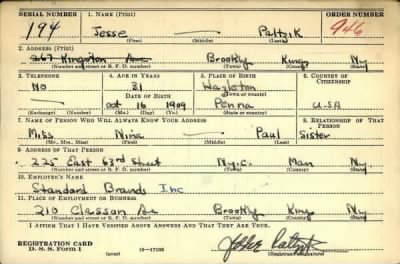 SERIAL NUMBER 1. NAME (Print) ORDER NUMBER
194 Jesse — Paltzik 946
(First) (Middle) (Last)
2. ADDRESS (Print)
267 Kingston Ave Brookly Kings Ny
(Number and street or R. F. D. number) (Town) (County) (State)
3. TELEPHONE 4. AGE IN YEARS 5. PLACE OF BIRTH 6. COUNTRY OF CITIZENSHIP
NO 31 Hazleton
DATE OF BIRTH (Town or county)
Oct 16 1909 Penna USA
(Exchange) (Number) (Mo.) (Day) (Yr.) (State or country)
7. NAME OF PERSON WHO WILL ALWAYS KNOW YOUR ADDRESS 8. RELATIONSHIP OF THAT PERSON
Miss Nina — Paul Sister
(Mr., Mrs., Miss) (First) (Middle) (Last)
9. ADDRESS OF THAT PERSON
225 East 63rd Street N.y.c. Man Ny
(Number and street or R. F. D. number) (Town) (County) (State)
10. EMPLOYER'S NAME
Standard Brands Inc
11. PLACE OF EMPLOYMENT OR BUSINESS
210 Classon Ave Brookly King Ny
(Number and street or R. F. D. number) (Town) (County) (State)
I AFFIRM THAT I HAVE VERIFIED ABOVE ANSWERS AND THAT THEY ARE TRUE.
REGISTRATION CARD
D. S. S. FORM 1 (over) 16—17105
(Registrant's signature)